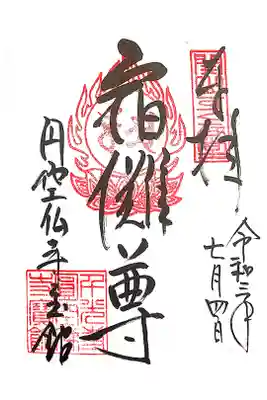 奉拝
令和三年
七月四日
宿儺尊
円空仏寺宝館